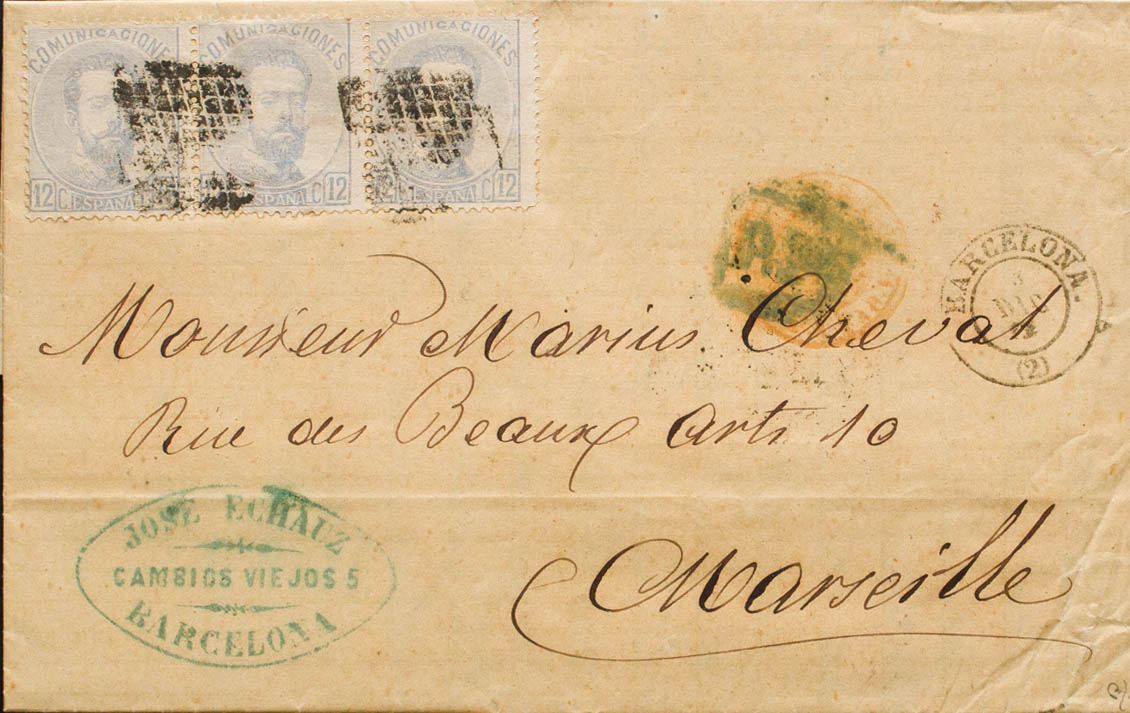 COMUNICACIONES COMUNICACIONES COMUNICACIONES
12 C. ESPAÑA C. ESPAÑA C 12 ESPAÑA C 12
BARCELONA.
3
DIC
(2)
Monsieur Marius Cheval
Rue des Beaux arts 10
Marseille
JOSÉ ECHAUZ
CAMBIOS VIEJOS 5
BARCELONA